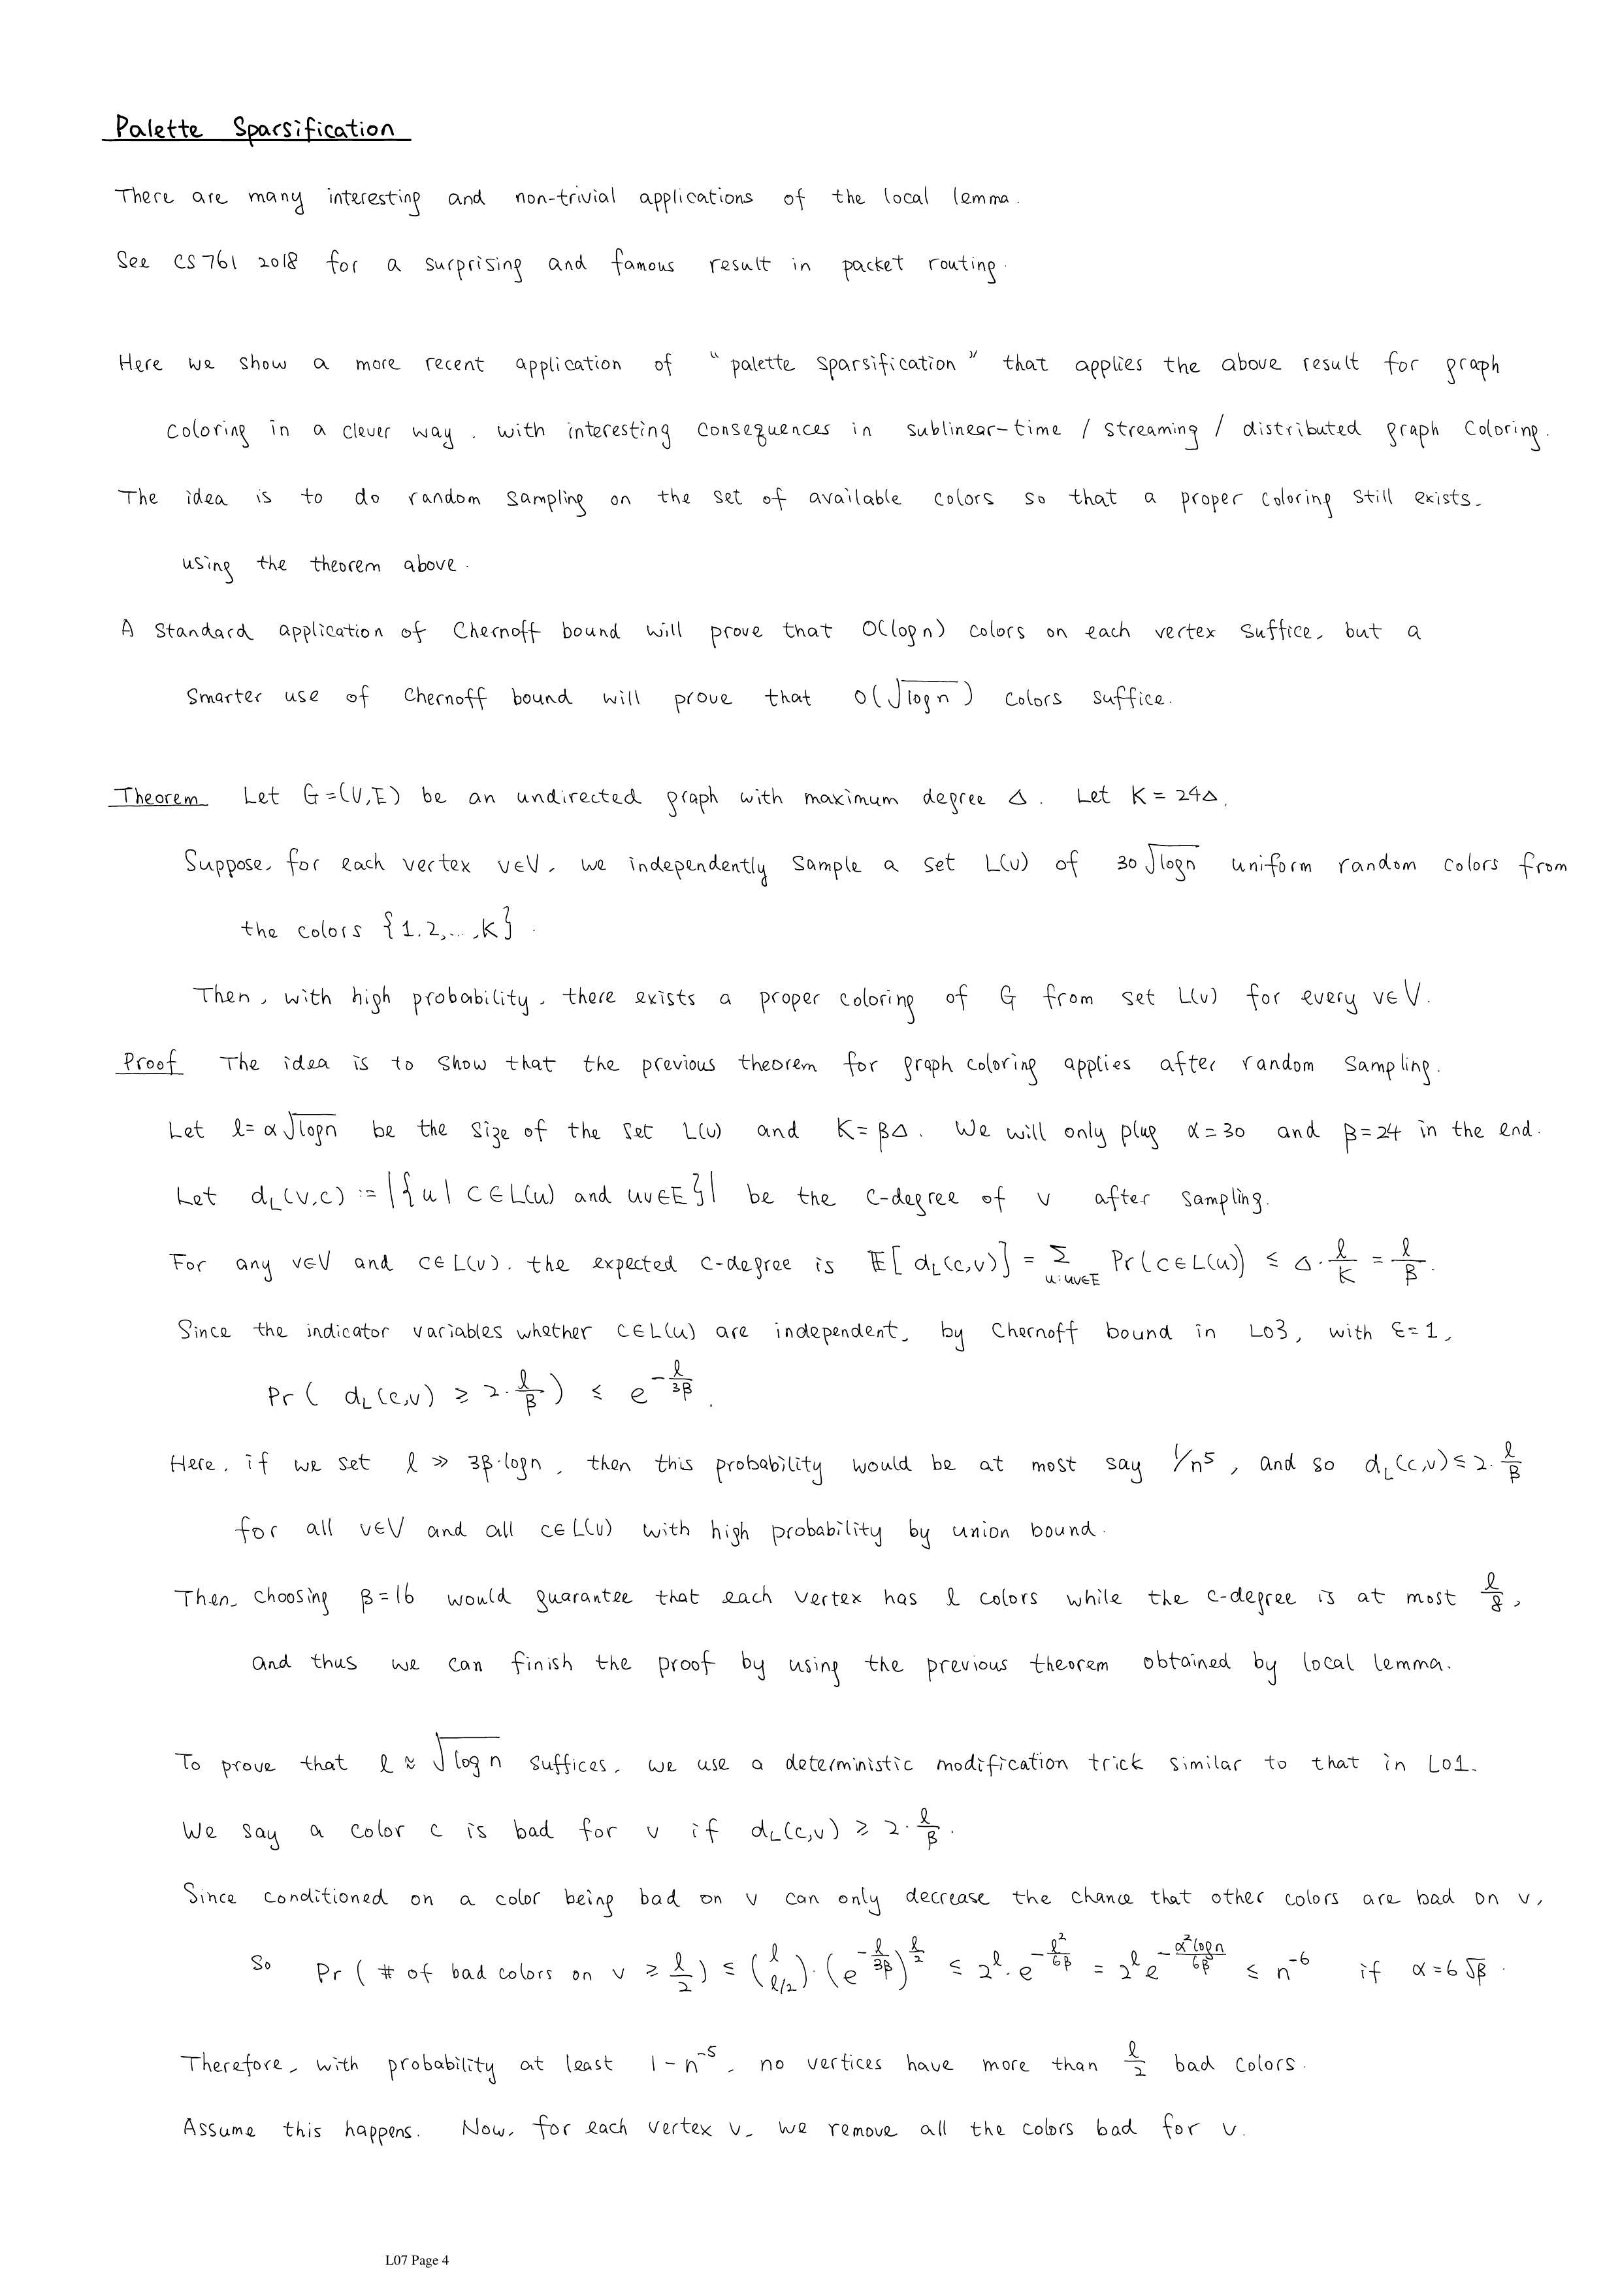 Palette Sparsification
There are many interesting and non-trivial applications of the local lemma.
See CS 761 2018 for a surprising and famous result in packet routing.
Here we show a more recent application of "palette sparsification" that applies the above result for graph
coloring in a clever way, with interesting consequences in sublinear-time / streaming / distributed graph coloring.
The idea is to do random sampling on the set of available colors so that a proper coloring still exists,
using the theorem above.
A standard application of Chernoff bound will prove that O(log n) colors on each vertex suffice, but a
smarter use of Chernoff bound will prove that O(√log n) colors suffice.
Theorem Let G=(V,E) be an undirected graph with maximum degree Δ. Let K = 24Δ.
Suppose, for each vertex v∈V, we independently sample a set L(v) of 30√log n uniform random colors from
the colors {1,2,...,K}.
Then, with high probability, there exists a proper coloring of G from set L(v) for every v∈V.
Proof The idea is to show that the previous theorem for graph coloring applies after random sampling.
Let l=α√log n be the size of the set L(v) and K=βΔ. We will only plug α=30 and β=24 in the end.
Let d_L(v,c) := |{u | c∈L(u) and uv∈E}| be the c-degree of v after sampling.
For any v∈V and c∈L(v), the expected c-degree is E[d_L(c,v)] = Σ_{u:uv∈E} Pr(c∈L(u)) ≤ Δ·l/K = l/β.
Since the indicator variables whether c∈L(u) are independent, by Chernoff bound in L03, with ε=1,
Pr( d_L(c,v) ≥ 2·l/β ) ≤ e^{-l/3β}.
Here, if we set l ≫ 3β·log n, then this probability would be at most say 1/n^5, and so d_L(c,v) ≤ 2·l/β
for all v∈V and all c∈L(v) with high probability by union bound.
Then, choosing β=16 would guarantee that each vertex has l colors while the c-degree is at most l/8,
and thus we can finish the proof by using the previous theorem obtained by local lemma.
To prove that l ≈ √log n suffices, we use a deterministic modification trick similar to that in L01.
We say a color c is bad for v if d_L(c,v) ≥ 2·l/β.
Since conditioned on a color being bad on v can only decrease the chance that other colors are bad on v,
So Pr( # of bad colors on v ≥ l/2 ) ≤ (l choose l/2)·(e^{-l/3β})^{l/2} ≤ 2^l·e^{-l²/6β} = 2^l e^{-α² log n/6β} ≤ n^{-6} if α=6√β.
Therefore, with probability at least 1-n^{-5}, no vertices have more than l/2 bad colors.
Assume this happens. Now, for each vertex v, we remove all the colors bad for v.
L07 Page 4